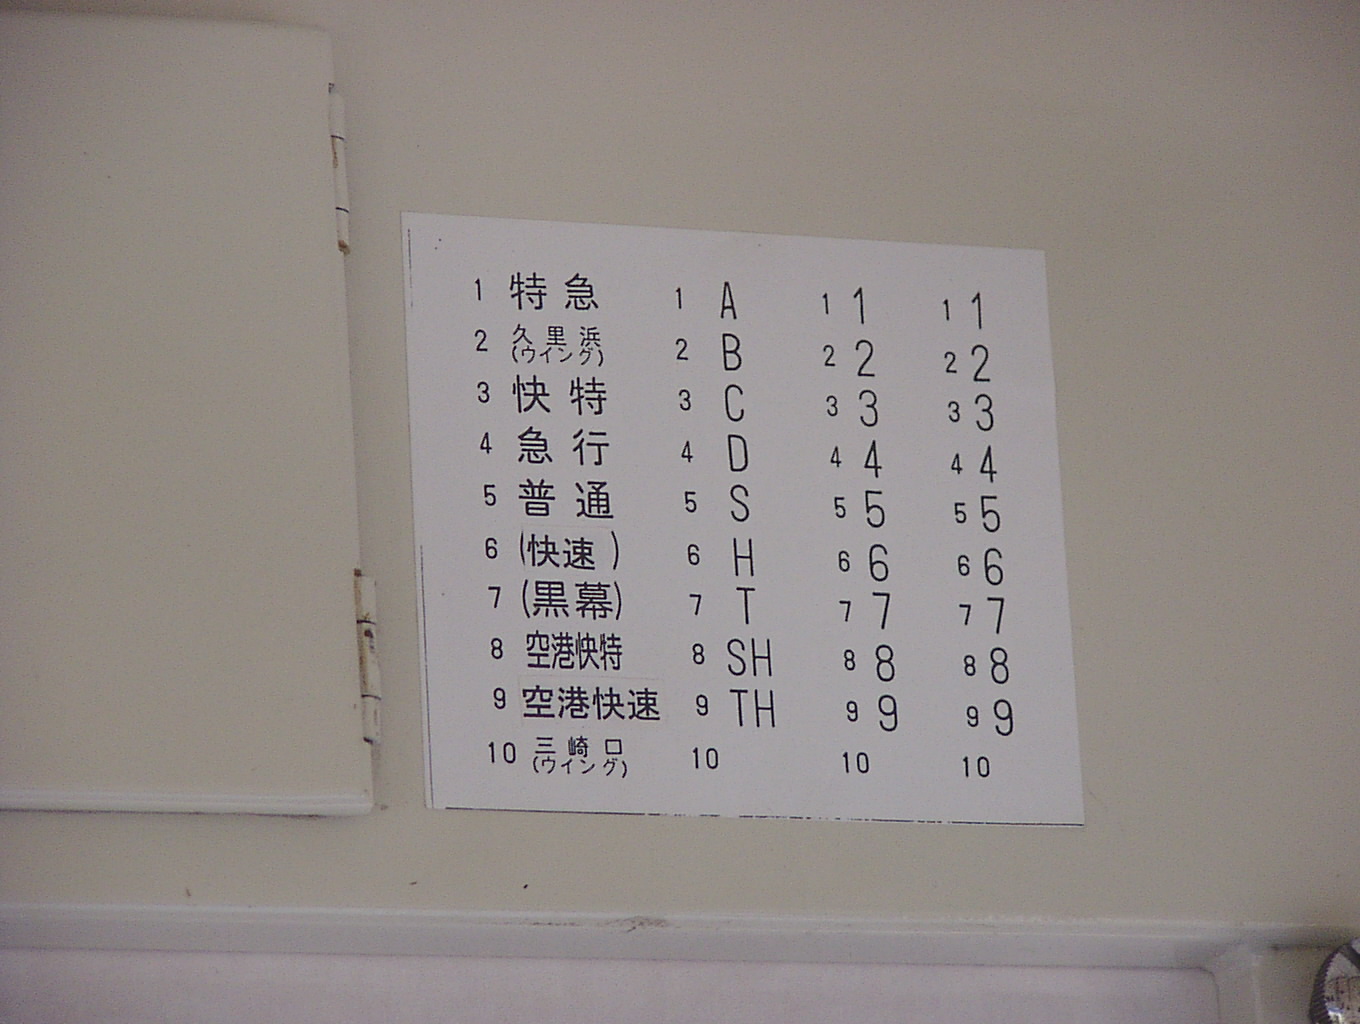 1 特急 1 A 1 1 1 1
2 久里浜 (ウイング) 2 B 2 2 2 2
3 快特 3 C 3 3 3 3
4 急行 4 D 4 4 4 4
5 普通 5 S 5 5 5 5
6 (快速) 6 H 6 6 6 6
7 (黒幕) 7 T 7 7 7 7
8 空港快特 8 SH 8 8 8 8
9 空港快速 9 TH 9 9 9 9
10 三崎口 (ウイング) 10 10 10